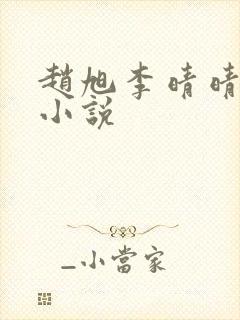 趙旭李晴晴
小說
_小當家